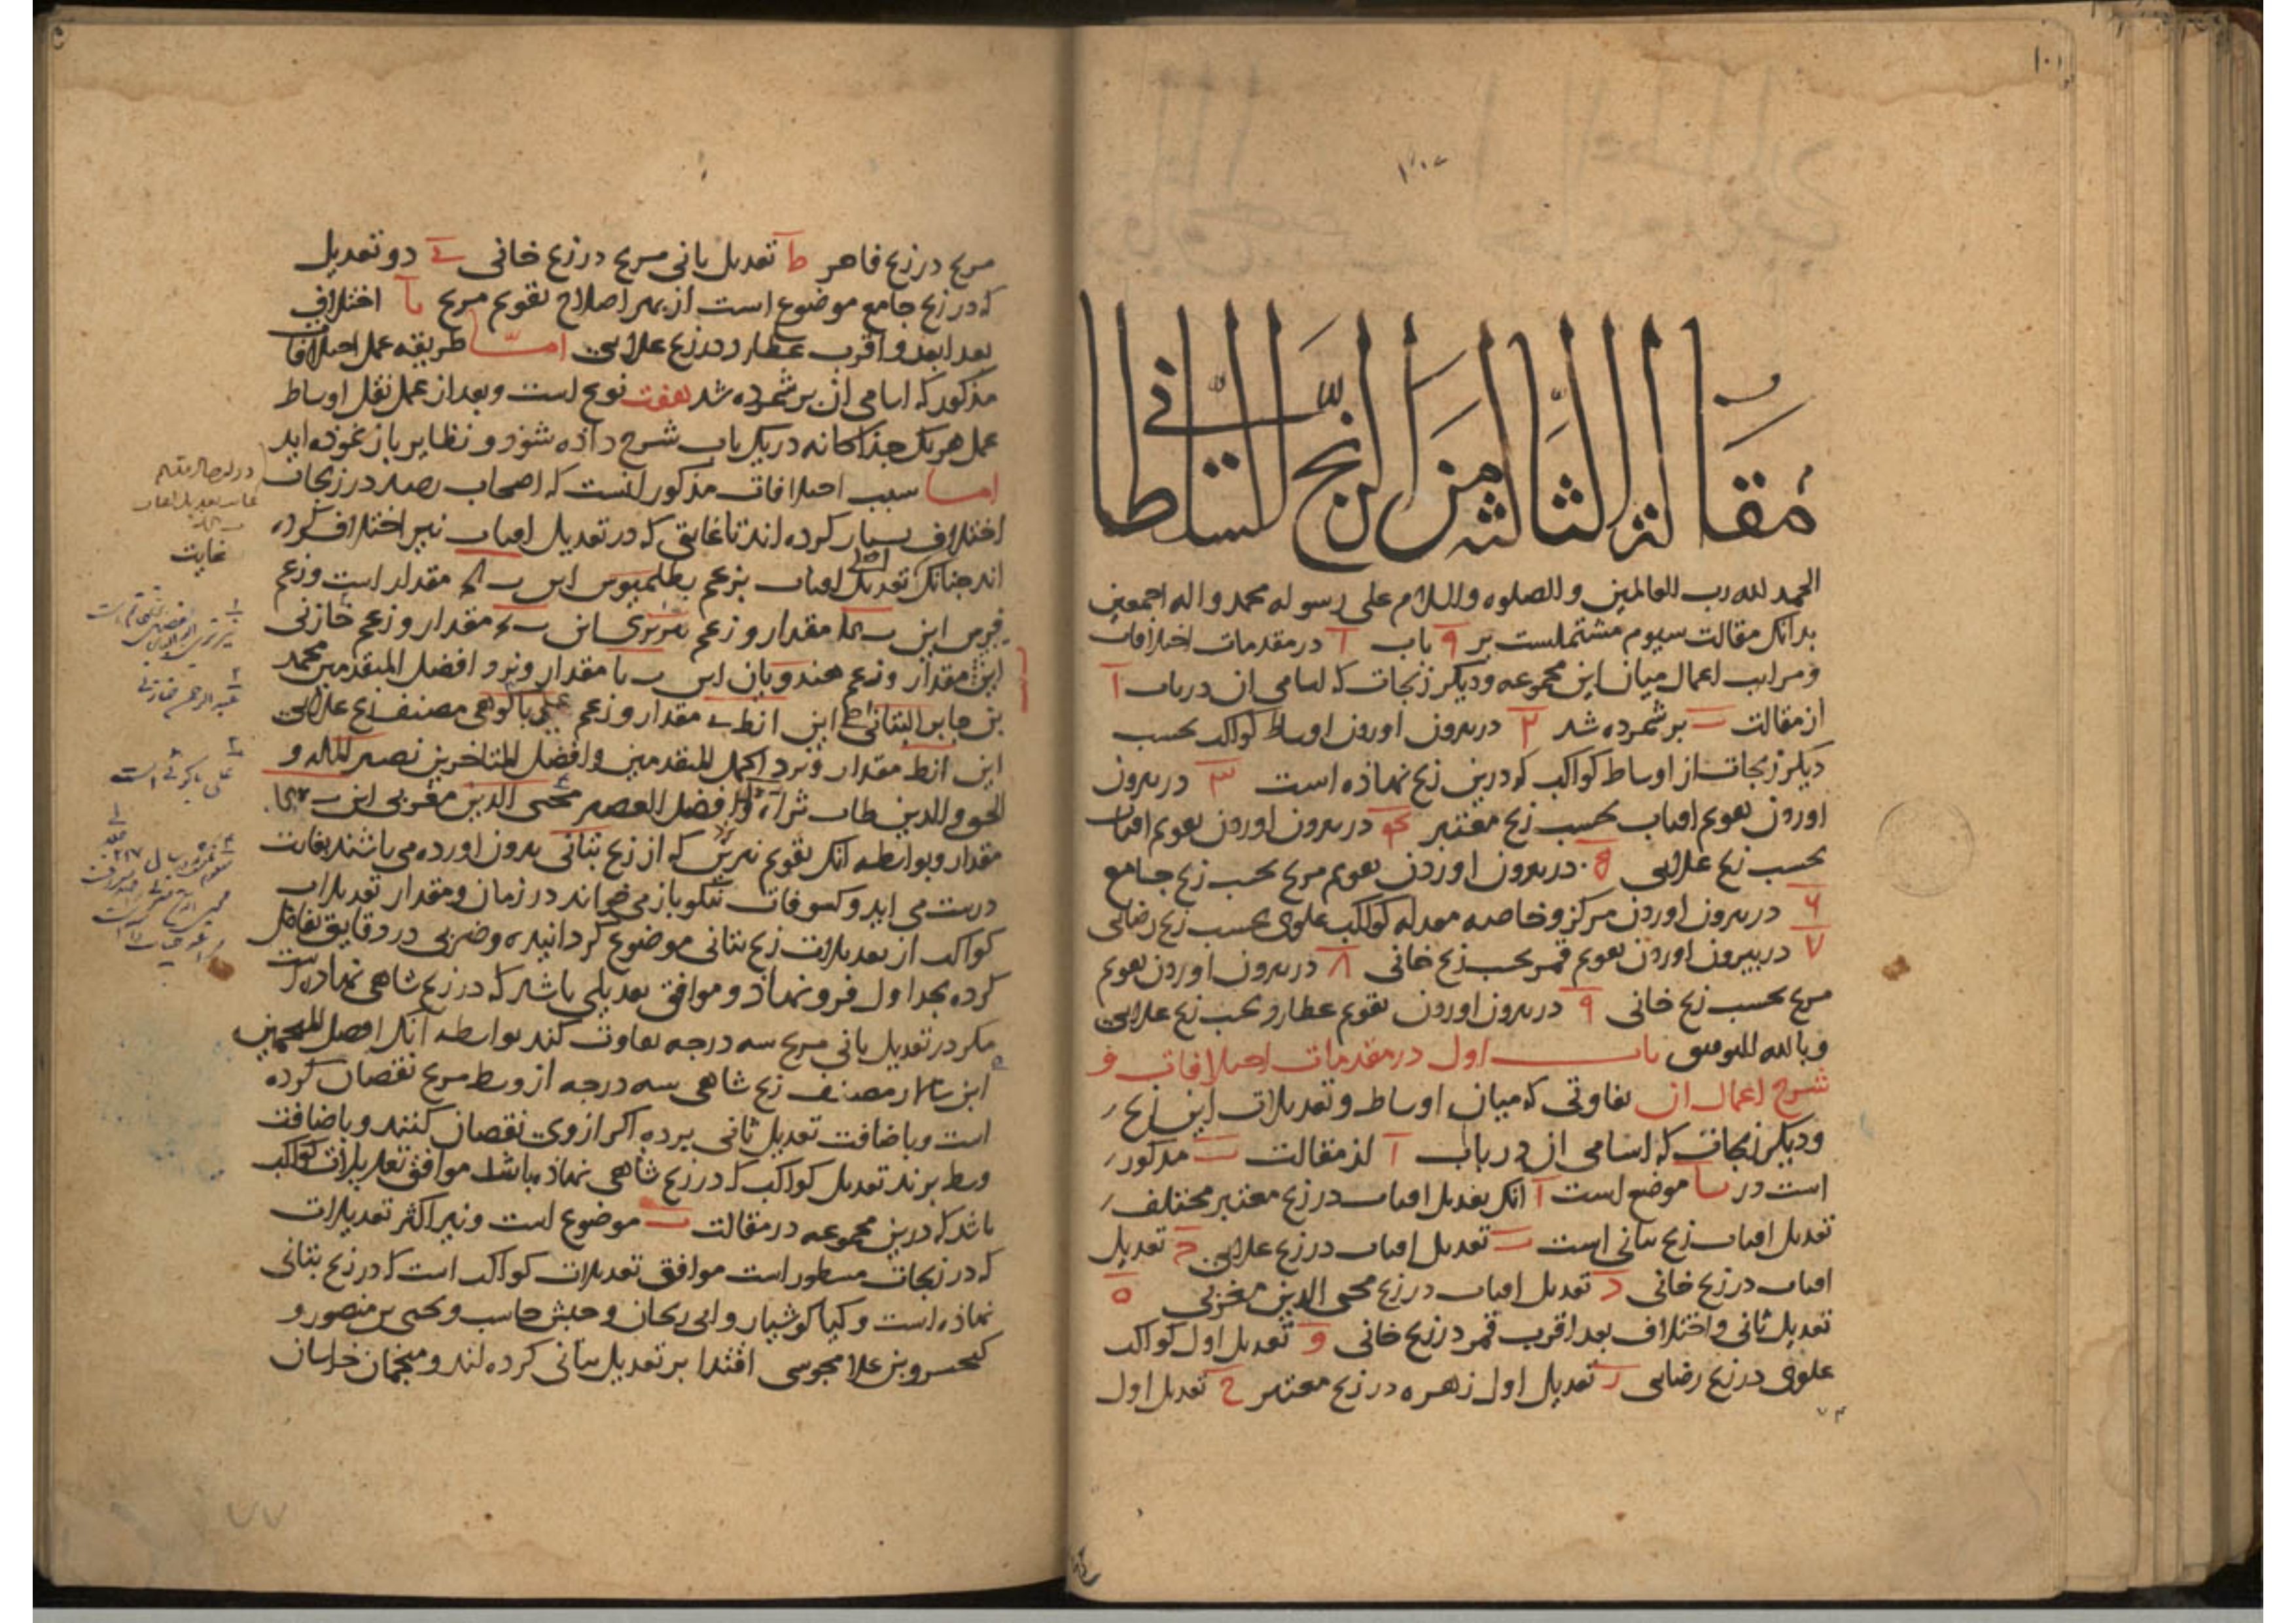 مقالة الثالثة من الزیج السلطانی
الحمد لله رب العالمین والصلوه والسلام علی رسوله محمد واله اجمعین
بدانک مقالت سیوم مشتملست بر ۹ باب آ در مقدمات اختلافات
ومراتب اعمال میان این مجموعه ودیکر زیجات که اسامی ان در باب آ
از مقالت ب برشمرده شد ۲ در بیرون اوردن اوساط کواکب بحسب
دیکر زیجات از اوساط کواکب که درین زیج نهاده است ۳ در بیرون
اوردن تقویم افتاب بحسب زیج معتبر ۴ در بیرون اوردن تقویم افتاب
بحسب زیج علایی ۵ در بیرون اوردن تقویم مریخ بحسب زیج جامع
۶ در بیرون اوردن مرکز وخاصه معدله کواکب علوی بحسب زیج رضایی
۷ در بیرون اوردن تقویم قمر بحسب زیج خانی ۸ در بیرون اوردن تقویم
مریخ بحسب زیج خانی ۹ در بیرون اوردن تقویم عطارد بحسب زیج علایی
وبالله التوفیق باب اول در مقدمات اختلافات و
شرح اعمال ان تفاوتی که میان اوساط وتعدیلات این زیج
ودیکر زیجات که اسامی ان در باب آ از مقالت ب مذکور
است در یا موضع است آ انک تعدیل افتاب در زیج معتبر مختلف
تعدیل افتاب زیج بتانی است ب تعدیل افتاب در زیج علایی ج تعدیل
افتاب در زیج خانی د تعدیل افتاب در زیج محیی الدین مغربی ه
تعدیل ثانی واختلاف بعد اقرب قمر در زیج خانی و تعدیل اول کواکب
علوی در زیج رضایی ز تعدیل اول زهره در زیج معتبر ح تعدیل اول
مریخ در زیج قاهر ط تعدیل ثانی مریخ در زیج خانی ی دو تعدیل
که در زیج جامع موضوع است از بهر اصلاح تقویم مریخ یا اختلاف
بعد ابعد واقرب عطارد در زیج علایی اما طریقه عمل اختلافات
مذکور که اسامی ان برشمرده شد هفت نوع است وبعد از عمل نقل اوساط
عمل هر یک جذاکانه در یک باب شرح داذه شوذ و نظایر باز نموذه اید
اما سبب اختلافات مذکور انست که اصحاب رصد در زیجات
اختلاف بسیار کرده اند تا غایتی که در تعدیل افتاب نیز اختلاف کرده
اند جنانک تعدیل افتاب بزعم بطلمیوس این مقدار است وزعم
این مقدار وزعم تبریزی این مقدار وزعم خازنی
این مقدار وزعم هندویان این مقدار ونزد افضل المتقدمین محمد
بن جابر البتانی این مقدار وزعم علی باکوهی مصنف زیج علایی
این مقدار ونزد اکمل المتقدمین وافضل المتاخرین نصیر الملة و
الحق والدین طاب ثراه وافضل العصر محیی الدین مغربی این
مقدار وبواسطه انک تقویم نیرین که از زیج بتانی بیرون اورده می باشند بغایت
درست می اید وکسوفات نیکو باز می خواند در زمان ومقدار تعدیلات
کواکب از تعدیلات زیج بتانی موضوع کردانیده وضربی در دقایق تفاضل
کرده بجداول فرو نهاذ وموافق تعدیلی باشد که در زیج شاهی نهاده است
مکر در تعدیل ثانی مریخ سه درجه تفاوت کند بواسطه انک افضل المنجمین
مصنف زیج شاهی سه درجه از وسط مریخ نقصان کرده
است وباضافت تعدیل ثانی برده اکر از وی نقصان کنند وباضافت
وسط برند تعدیل کواکب که در زیج شاهی نهاذ باشد موافق تعدیلات کواکب
باشد که درین مجموعه در مقالت ب موضوع است ونیز اکثر تعدیلات
که در زیجات مسطور است موافق تعدیلات کواکب است که در زیج بتانی
نهاذه است وکیا کوشیار وابی ریحان وحبش حاسب ویحیی بن منصور و
کیخسرو بن علا مجوسی اقتدا بر تعدیل بتانی کرده اند ومنجمان خراسان
غایت